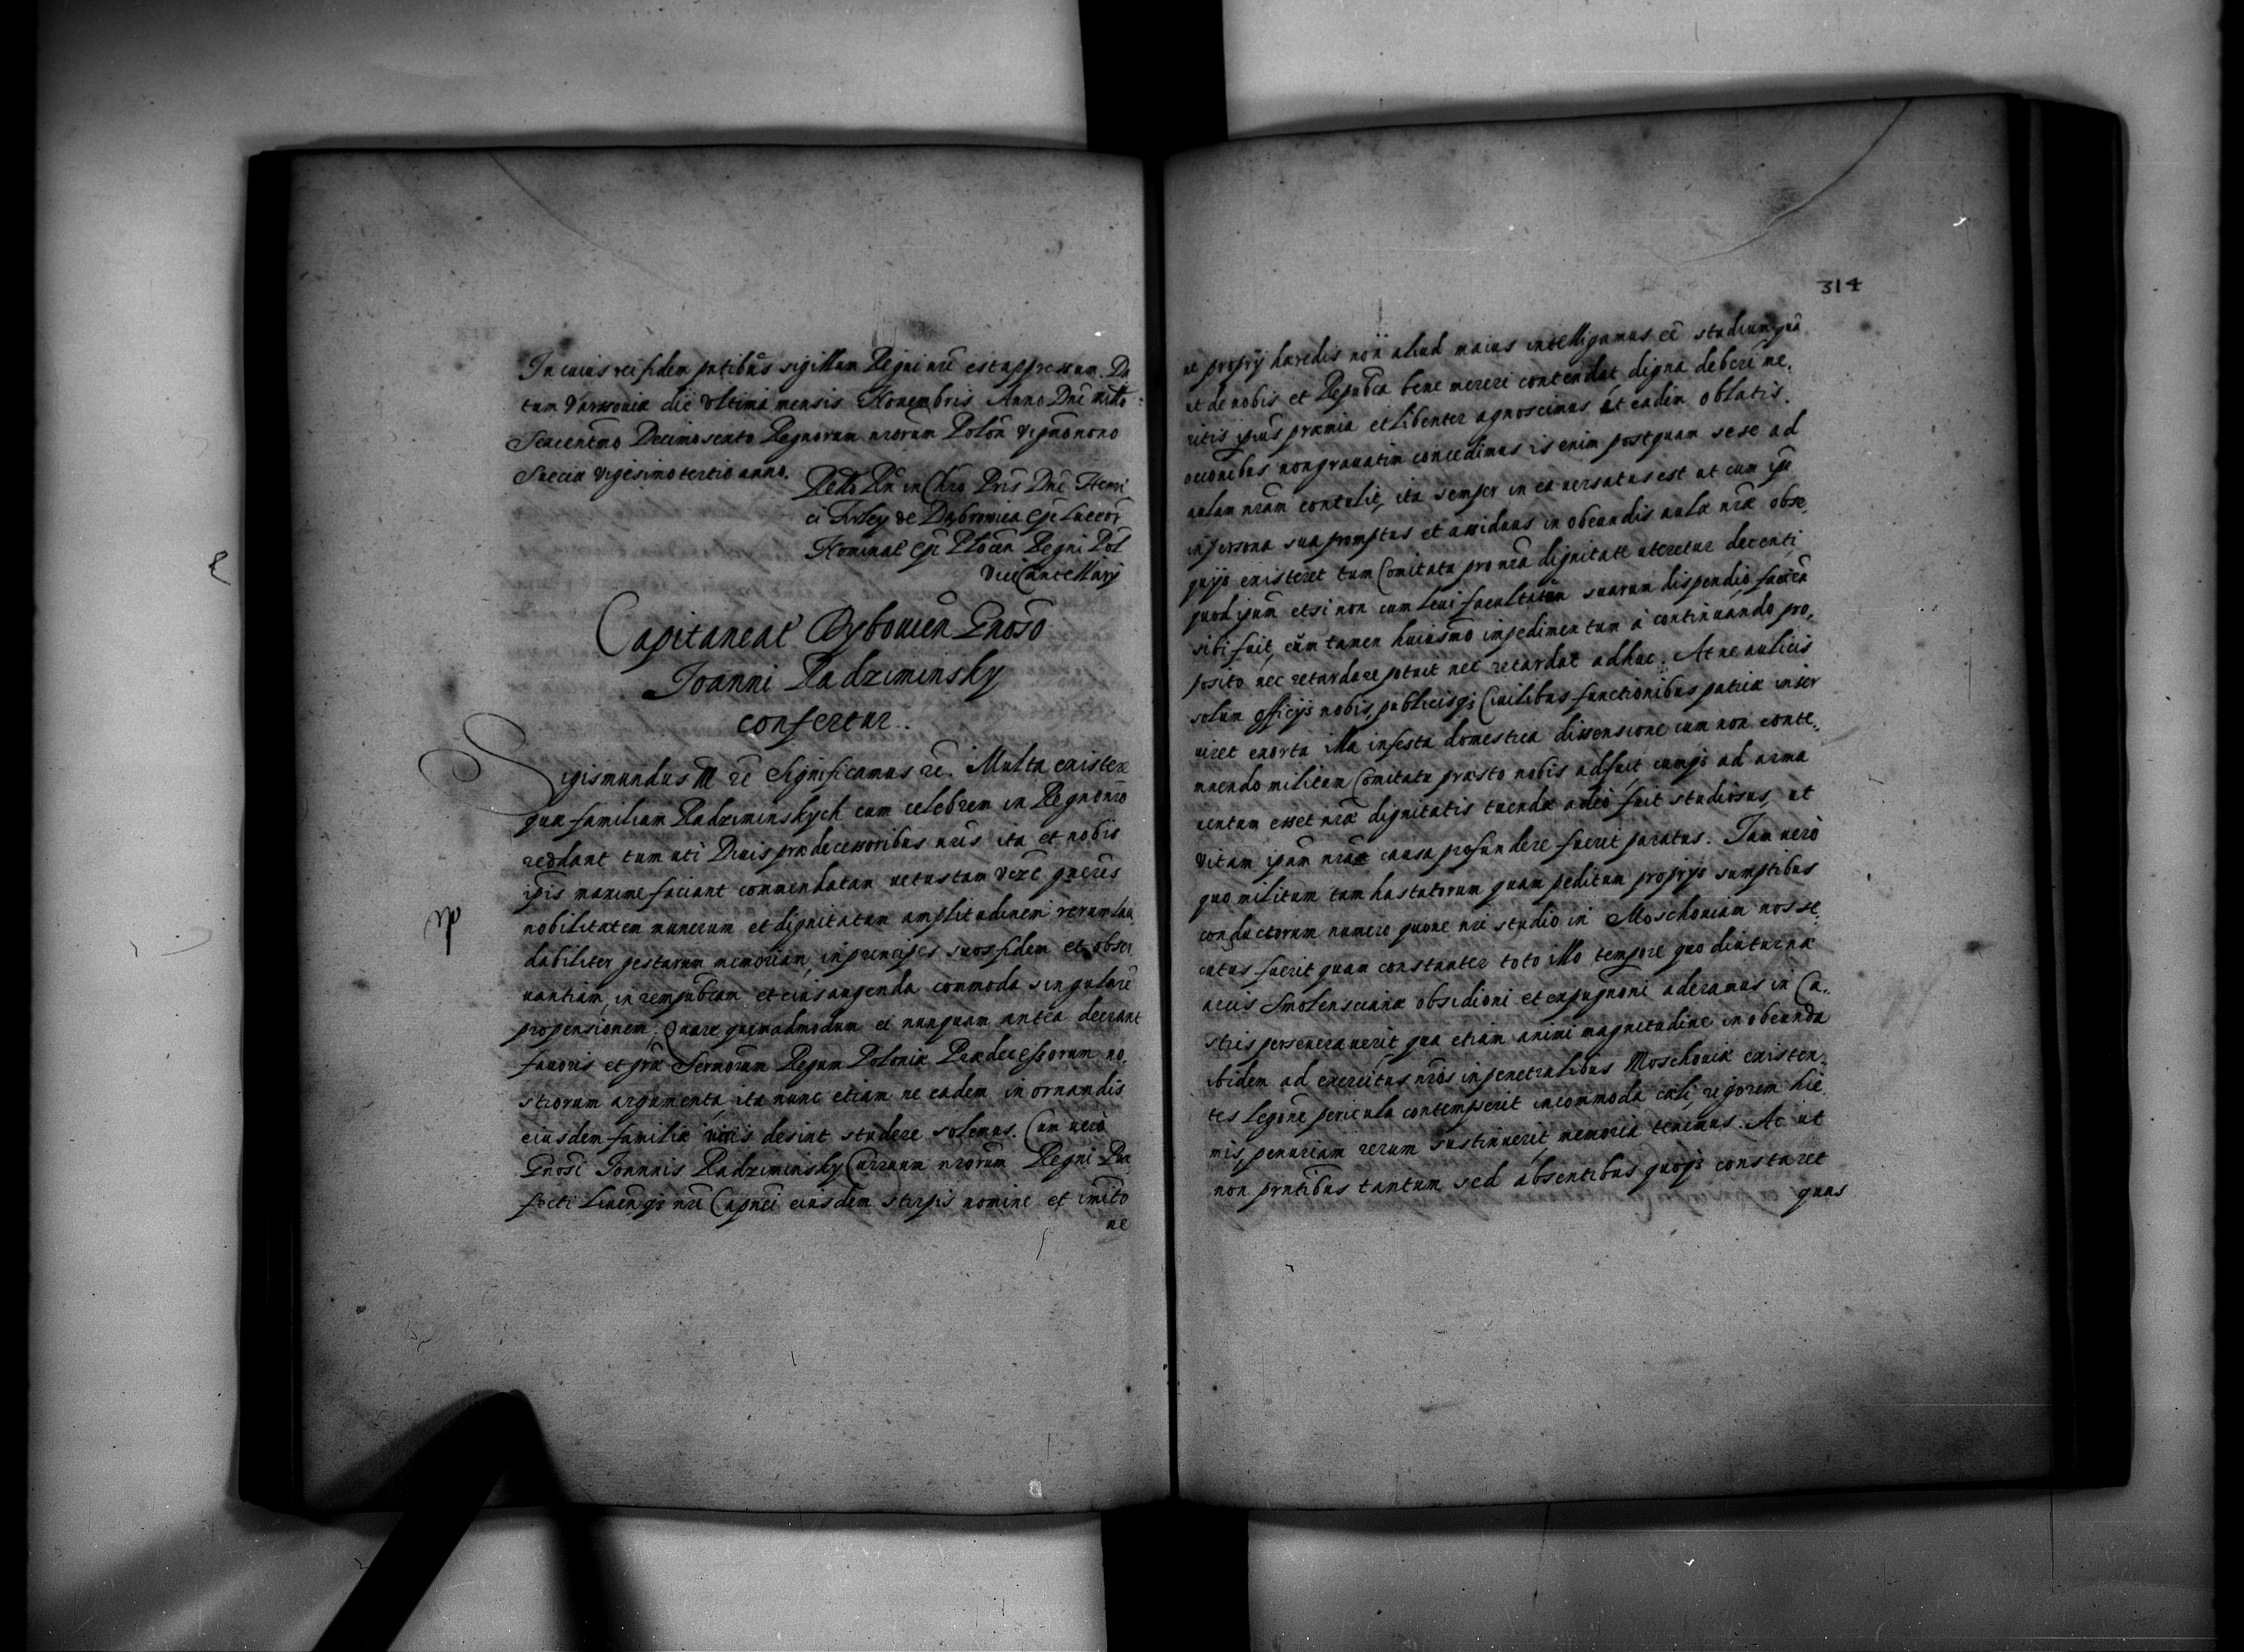 In cuius rei fidem pntibus sigillum Regni nri est appressum. Da
tum Varsouiæ die Vltima mensis Nouembris Anno Dni millo
Sexcentmo Decimosexto Regnorum nrorum Polon Vigmonono
Sueciæ Vigesimotertio anno.
Rello Rn in Chro Pris Dni Henri
ci Firley de Dąbrowica Epi Luceor
Nominat Epi Plocen Regni Pol
ViceCancellarij
Capitaneat Gnoso
Joanni Radziminsky
confertur.
Sigismundus III rc Significamus rc. Multa existere
quæ familiam Radziminskych cum celebrem in Regno nro
reddant tum uti Diuis prædecessoribus nris ita et nobis
ipis maxime faciant commendatam uetustam
nobilitatem munerum et dignitatum amplitudinem rerum lau
dabiliter gestarum memoriam, in principes suos fidem et obser
uantiam, in rempubcam et eius augenda commoda singulare
propensionem. Quare quemadmodum ei nunquam antea deerant
fauoris et græ Sermorum Regum Poloniæ Prædecessorum no
strorum argumenta, ita nunc etiam ne eadem in ornandis
eiusdem familiæ viris desint studere solemus. Cum uero
Gnosi Joannis Radziminsky Curruum nrorum Regni Præ
fecti Liuengs nri Capnei eiusdem stirpis nomine et
ne
314
ne proprij hæredis non aliud maius intelligamus ee studium qua
ut de nobis et Repubca bene mereri contendat digna deberi me,
ritis ipius præmia et libenter agnoscimus et eadem oblatis.
occonibus non grauatim concedimus is enim postquam sese ad
aulam nram contulit, ita semper in ea uersatus est ut cum ipe
in persona sua promptus et assiduus in obeundis aulæ nræ obse,
quijs existeret tum Comitatu pro nra dignitate uteretur decenti,
quod ipum etsi non cum leui facultatum suarum dispendio
sibi fuit, eum tamen huiusmo impedimentum a continuando pro,
posito nec retardare potuit nec retardat adhuc. At ne aulicis
solum officijs nobis, publicisqs Ciuilibus functionibus patriæ inser
uiret exorta illa infesta domestica dissensione cum non conte,
mnendo militum Comitatu præsto nobis adfuit cumqs ad arma
uentum esset nræ dignitatis tuendæ adeo fuit studiosus, ut
Vitam ipam nra causa profundere fuerit paratus. Iam uero
quo militum tam hastatorum quam peditum proprijs sumptibus
conductorum numero quoue nri studio in Moschouiam nos se,
cutus fuerit quam constanter toto illo tempore quo diuturnæ
arcis Smolenscianæ obsidioni et expugnoni aderamus in Ca,
stris perseuerauerit qua etiam animi magnitudine in obeunda
ibidem ad exercitus nros in penetralibus Moschouiæ existen,
tes legone pericula contempserit incommoda cæli, rigorem hie
mis, penuriam rerum sustinuerit, memoria tenemus. Ac ut
non prntibus tantum sed absentibus quoqs constaret
quas